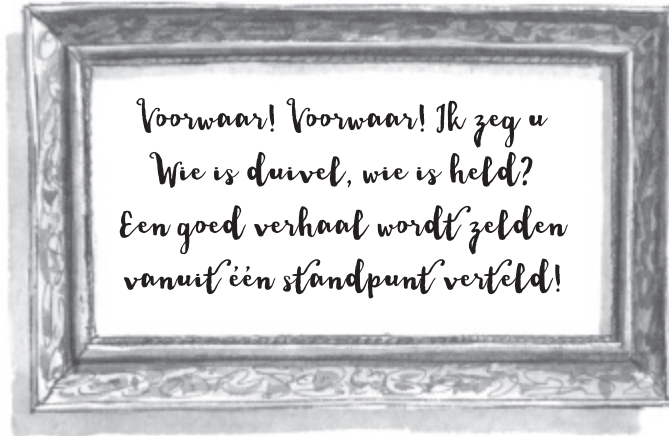 Voorwaar! Voorwaar! Ik zeg u
Wie is duivel, wie is held?
Een goed verhaal wordt zelden
vanuit één standpunt verteld!